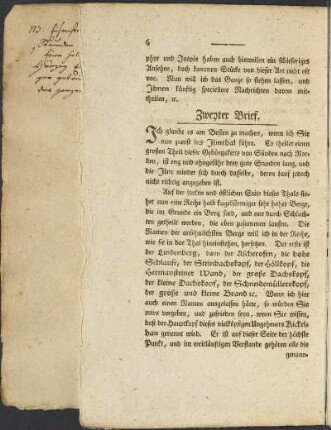 6
phyr und Jaspis haben auch bisweilen ein schieferiges
Ansehen, doch kommen Stücke von dieser Art nicht oft
vor. Man will ich das Ganze so stehen lassen, und
Ihnen künftig speciellere Nachrichten davon mit-
theilen, ꝛc.
Zweyter Brief.
Ich glaube es am Besten zu machen, wenn ich Sie
nun zuerst ins Ilmenthal führe. Es theilet einen
großen Theil dieser Gebürgskette von Süden nach Nor-
den, ist eng und ohngefähr drey gute Stunden lang, und
die Ilm windet sich durch dasselbe, deren Lauf jedoch
nicht richtig angegeben ist.
Auf der linken und östlichen Seite dieses Thals sie-
het man eine Reihe halb kugelförmiger sehr hoher Berge,
die im Grunde ein Berg sind, und nur durch Schluch-
ten getheilt werden, die oben zusammen laufen. Die
Namen der ansehnlichsten Berge will ich in der Reihe,
wie sie in das Thal hineinstehen, hersetzen. Der erste ist
der Lindenberg, dann der Ascherofen, die hohe
Schlaufe, der Steinbachskopf, der Höllkopf, die
Hermannsteiner Wand, der große Dachskopf,
der kleine Dachskopf, der Schneidemüllerskopf,
der große und kleine Brand ꝛc. Wenn ich hier
auch einen Namen ausgelassen hätte, so würden Sie
mirs vergeben, und zufrieden seyn, wenn Sie wissen,
daß der Hauptkopf dieses vielköpfigen Ungeheuers Kickels
han genennt wird. Er ist auf dieser Seite der höchste
Punkt, und im weitläuftigen Verstande gehören alle die
genann-